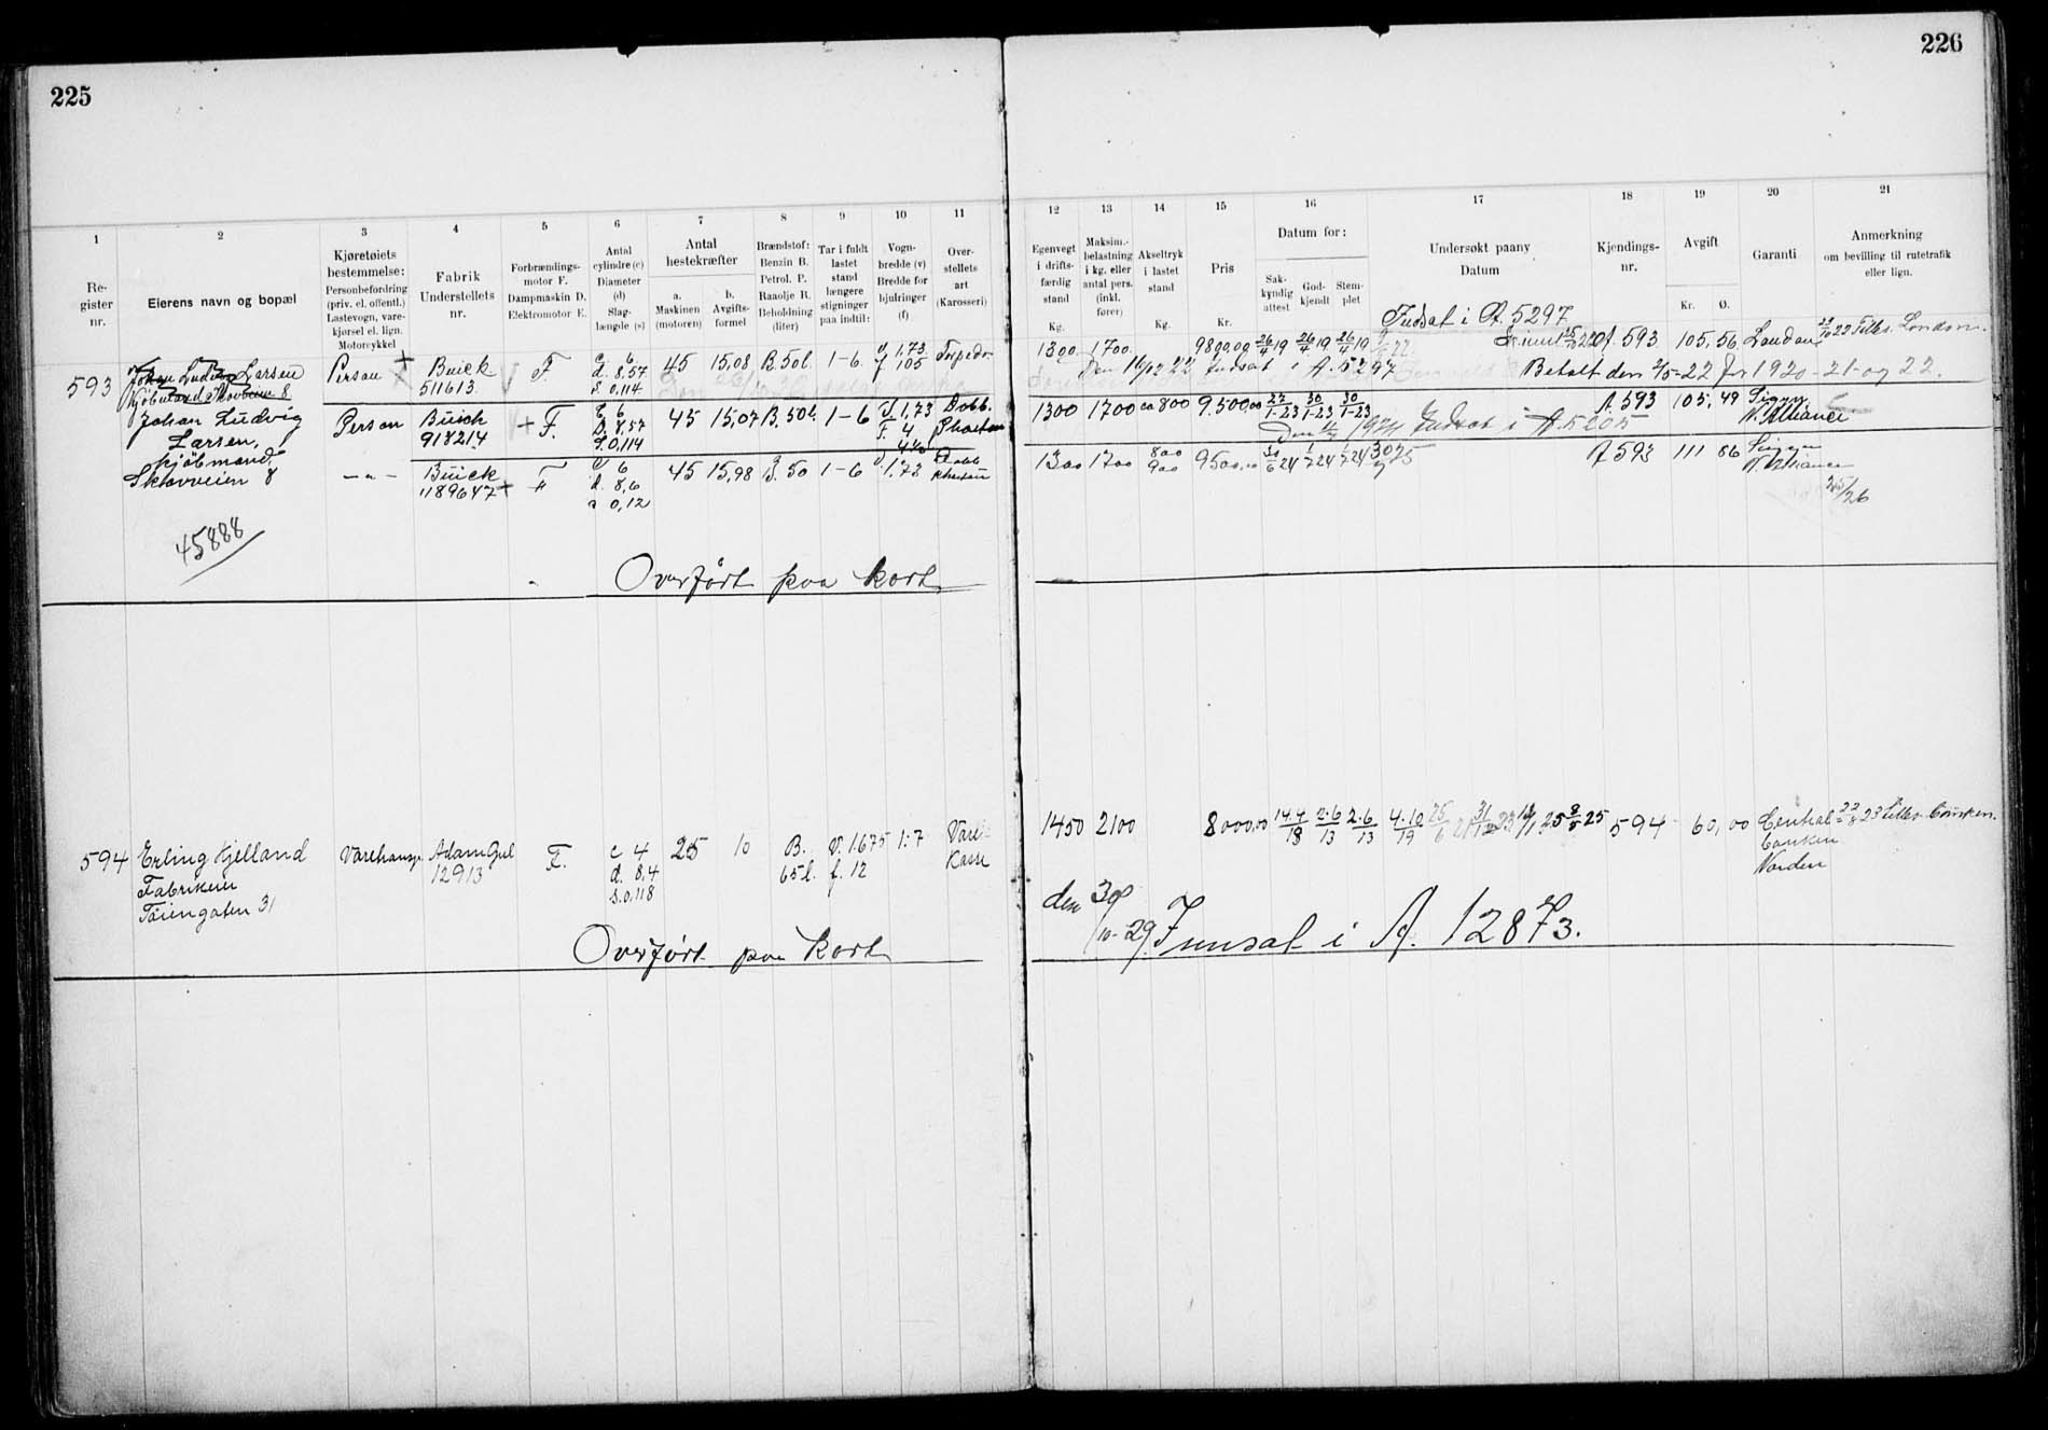 225
226
1 2 3 4 5 6 7 8 9 10 11
Re-
gister
nr.
Eierens navn og bopæl
Kjøretøiets
bestemmelse:
Personbefordring
(priv. el. offentl.)
Lastevogn, vare-
kjørsel el. lign.
Motorcykkel
Fabrik
Understellets
nr.
Forbrændings-
motor F.
Dampmaskin D.
Elektromotor E.
Antal
cylindre (c)
Diameter
(d)
Slag-
længde (s)
Antal
hestekræfter
a.
Maskinen
(motoren)
b.
Avgifts-
formel
Brændstof:
Benzin B.
Petrol. P.
Raaolje R.
Beholdning
(liter)
Tar i fuldt
lastet
stand
længere
stigninger
paa indtil:
Vogn-
bredde (v)
Bredde for
hjulringer
(f)
Over-
stellets
art
(Karosseri)
12 13 14 15 16 17 18 19 20 21
Egenvegt
i drifts-
færdig
stand
Kg.
Maksim.-
belastning
i kg. eller
antal pers.
(inkl.
fører)
Akseltryk
i lastet
stand
Kg.
Pris
Kr.
Datum for:
Sak-
kyndig
attest
God-
kjendt
Stem-
plet
Undersøkt paany
Datum
Kjendings-
nr.
Avgift
Kr. Ø.
Garanti
Anmerkning
om bevilling til rutetrafik
eller lign.
Indsat i A. 5297
593 Johan Ludvig Larsen Person + Buick F. c 6 45 15,08 B. 50 l. 1-6 v 1,73 Torpedo
Kjøbmand Skovveien 8 511613 d. 8,57 f 105
s. 0,114
1300 1700 9800,00 26/4 19 26/4 19 26/4 19 A. 593 105,56 London 23 Tills. London.
Den 16/12 22 Indsat i A. 5297 Betalt den 2/5-22 for 1920-21- og 22.
Johan Ludvig Person Buick + F. C 6 45 15,07 B. 50 l. 1-6 V 1,73 Dobb.
Larsen, 918214 D 8,57 F. 4 Phaeton
S. 0,114
kjöbmand,
Skovveien 8
1300 1700 ca 800 9.500,00 27/1-23 30/1-23 30/1-23 A. 593 105,49 Sigyn
N. Alliance
1924 Indsat i A. 5205
-"- Buick + F c 6 45 15,98 B. 50 1-6 v 1.72 Dobb
1189647 d. 8,6 phaeton
s 0,12
1300 1700 800 9500,00 30/6 24 1/7 24 1/7 24 A 593 111 86 Sigyn
900 N. Alliance
25/26
45888
Overført paa kort
594 Erling Kjelland Varetransp. Adam Opel F. c 4 25 10 B. v. 1.675 1:7 Vare
Fabrikeier 12913 d. 8,4 65 l. f. 12 Kasse
Töiengaten 31 s. 0,118
1450 2100 8000,00 14.4/13 2.6/13 2.6/13 4.10/19 8/5 25 594 60,00 Central 22/8 23 Tills. banken.
banken
Norden
den 30/10-29 Innsat i A. 12873.
Overført paa kort